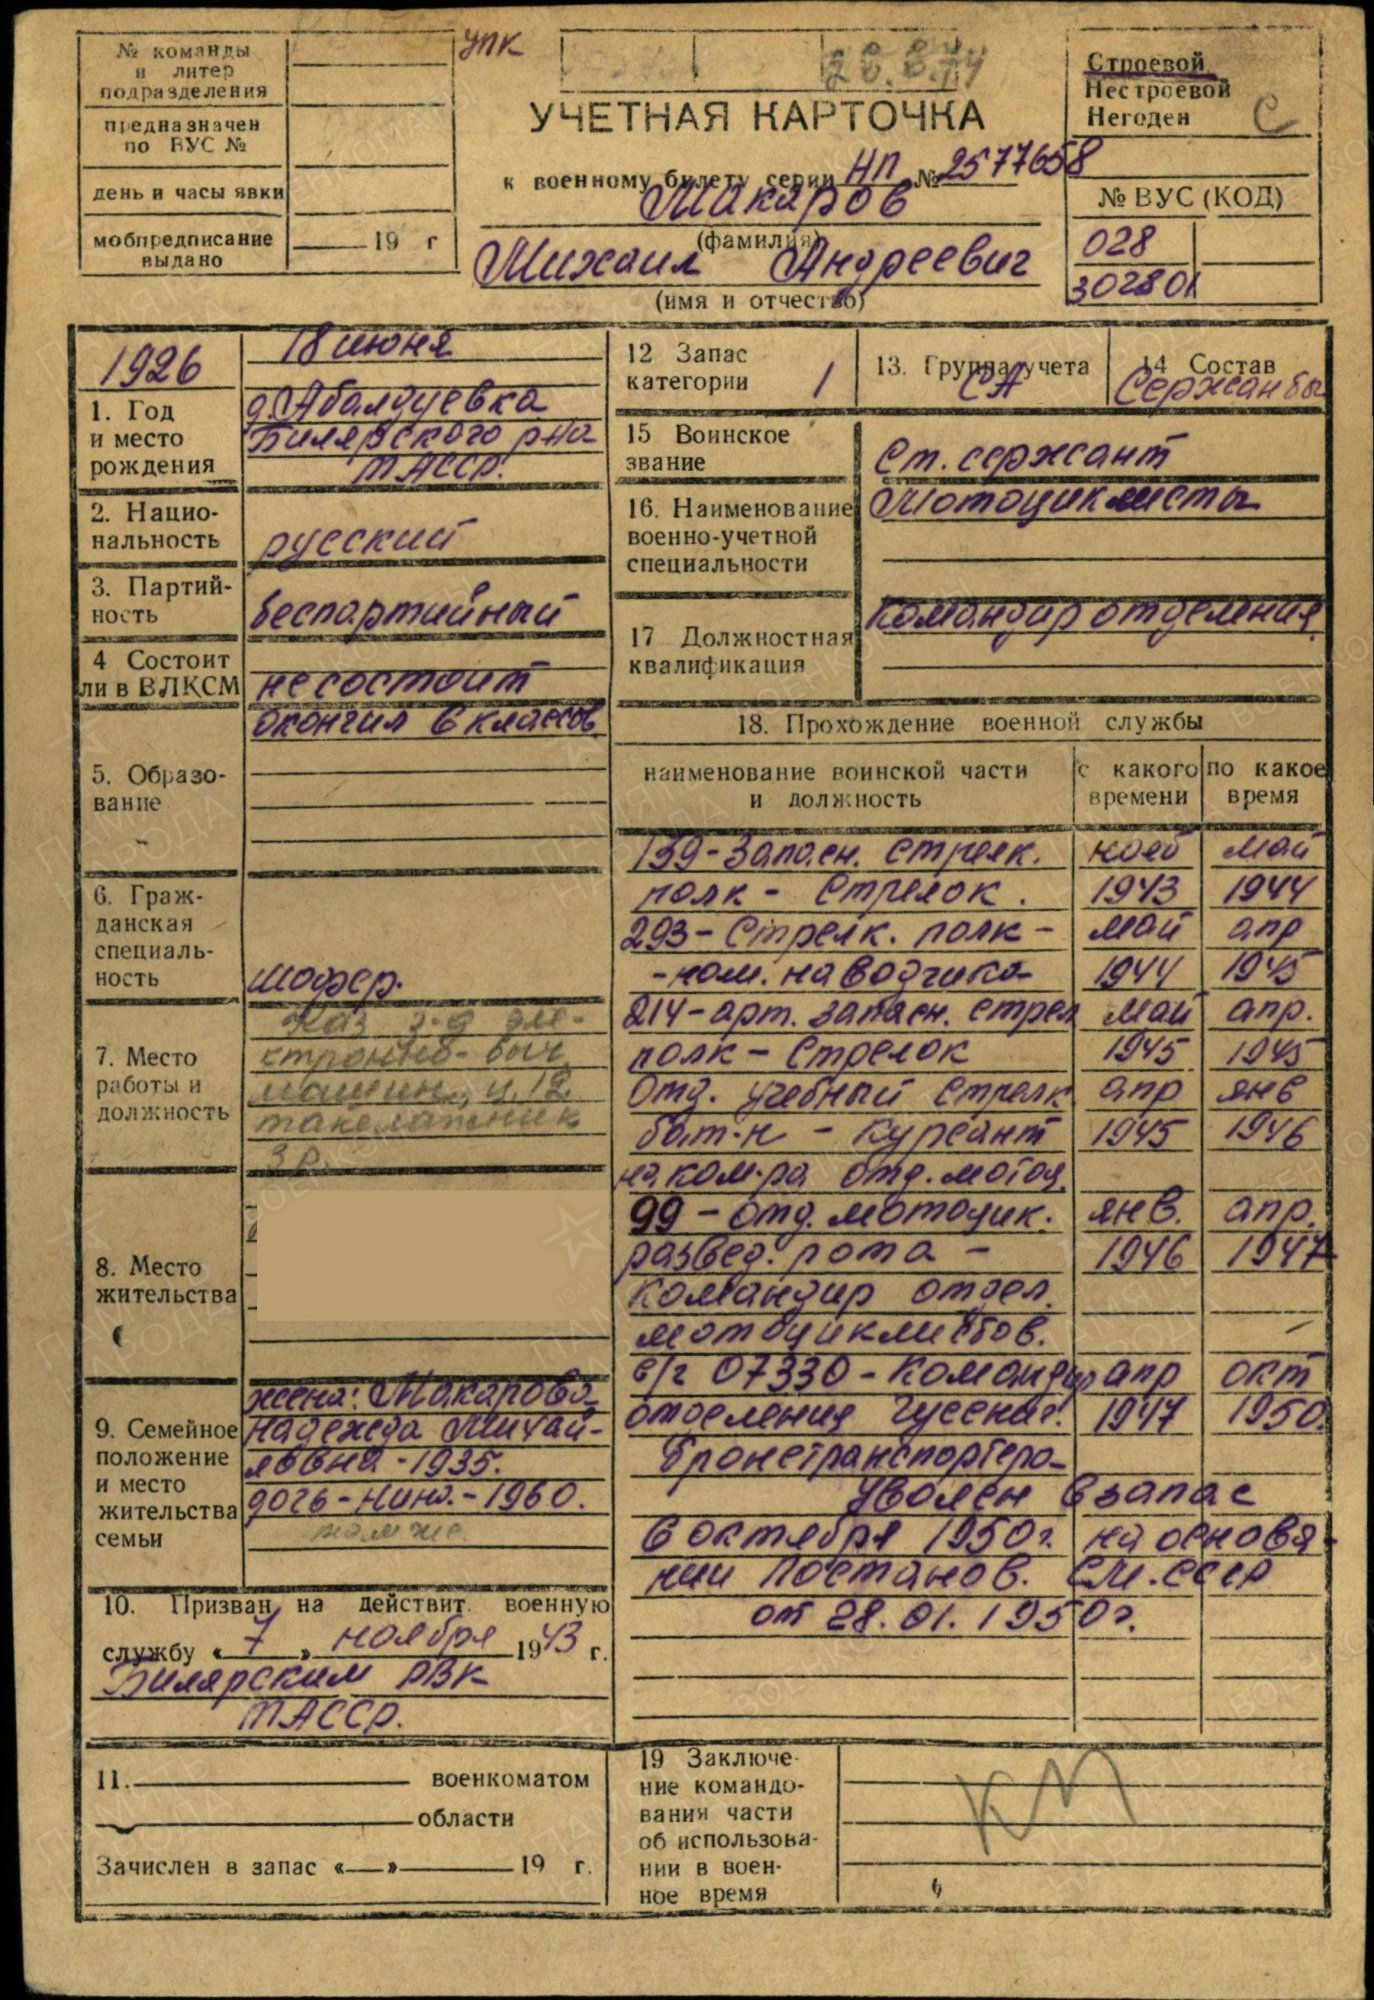 № команды
и литер
подразделения
предназначен
по ВУС №
день и часы явки
мобпредписание
выдано
19 г
УПК
УЧЕТНАЯ КАРТОЧКА
к военному билету серии НП № 2577658
Макаров
(фамилия)
Михаил Андреевич
(имя и отчество)
Строевой
Нестроевой
Негоден
С
№ ВУС (КОД)
028
302801
1926
1. Год
и место
рождения
18 июня
д. Абалдуевка
Билярского р-на
ТАССР.
2. Нацио-
нальность
русский
3. Партий-
ность
беспартийный
4 Состоит
ли в ВЛКСМ
не состоит
5. Образо-
вание
окончил 6 классов
6. Граж-
данская
специаль-
ность
шофер.
7. Место
работы и
должность
Каз з-д эле-
ктронно-выч
машин, ц.12
такелажник
3 р.
8. Место
жительства
9. Семейное
положение
и место
жительства
семьи
жена: Макарова
Надежда Михай-
ловна - 1935.
дочь - Нина. - 1960.
там же.
10. Призван на действит. военную
службу « 7 » ноября 1943 г.
Билярским РВК
ТАССР.
11. военкоматом
области
Зачислен в запас « » 19 г.
12 Запас
категории 1
13. Группа учета
СА
14 Состав
Сержанты
15 Воинское
звание
Ст. сержант
16. Наименование
военно-учетной
специальности
Мотоциклисты
17 Должностная
квалификация
Командир отделения.
18. Прохождение военной службы
наименование воинской части
и должность
с какого
времени
по какое
время
139 - запасн. стрелк. нояб май
полк - стрелок. 1943 1944
293 - стрелк. полк - май апр
- пом. наводчика 1944 1945
214 - арт. запасн. стрел май апр.
полк - стрелок 1945 1945
Отд. учебный стрелк апр янв
бат-н - курсант 1945 1946
на ком-ра отд. мотоц.
99 - отд. мотоцик. янв. апр.
развед. рота - 1946 1947
командир отдел.
мотоциклистов.
в/ч 07330 - командир апр окт
отделения гусенич. 1947 1950.
бронетранспортера
уволен в запас
6 октября 1950 г. на основа-
нии Постанов. СМ. СССР
от 28.01.1950 г.
19 Заключе-
ние командо-
вания части
об использова-
нии в воен-
ное время
КМ